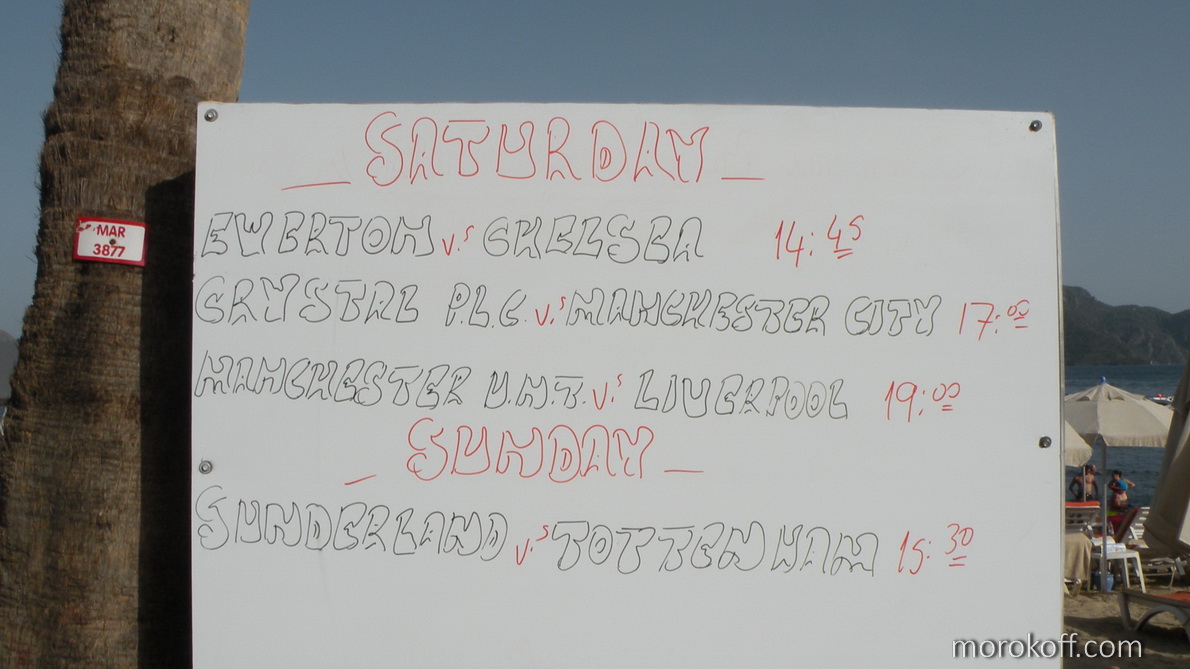 SATURDAY
EWERTON V.S CHELSEA 14:45
MAR
3877
CRYSTAL P.L.C. V.S MANCHESTER CITY 17:00
MANCHESTER U.N.T. V.S LIVERPOOL 19:00
SUNDAY
SUNDERLAND V.S TOTTENHAM 15:30
morokoff.com